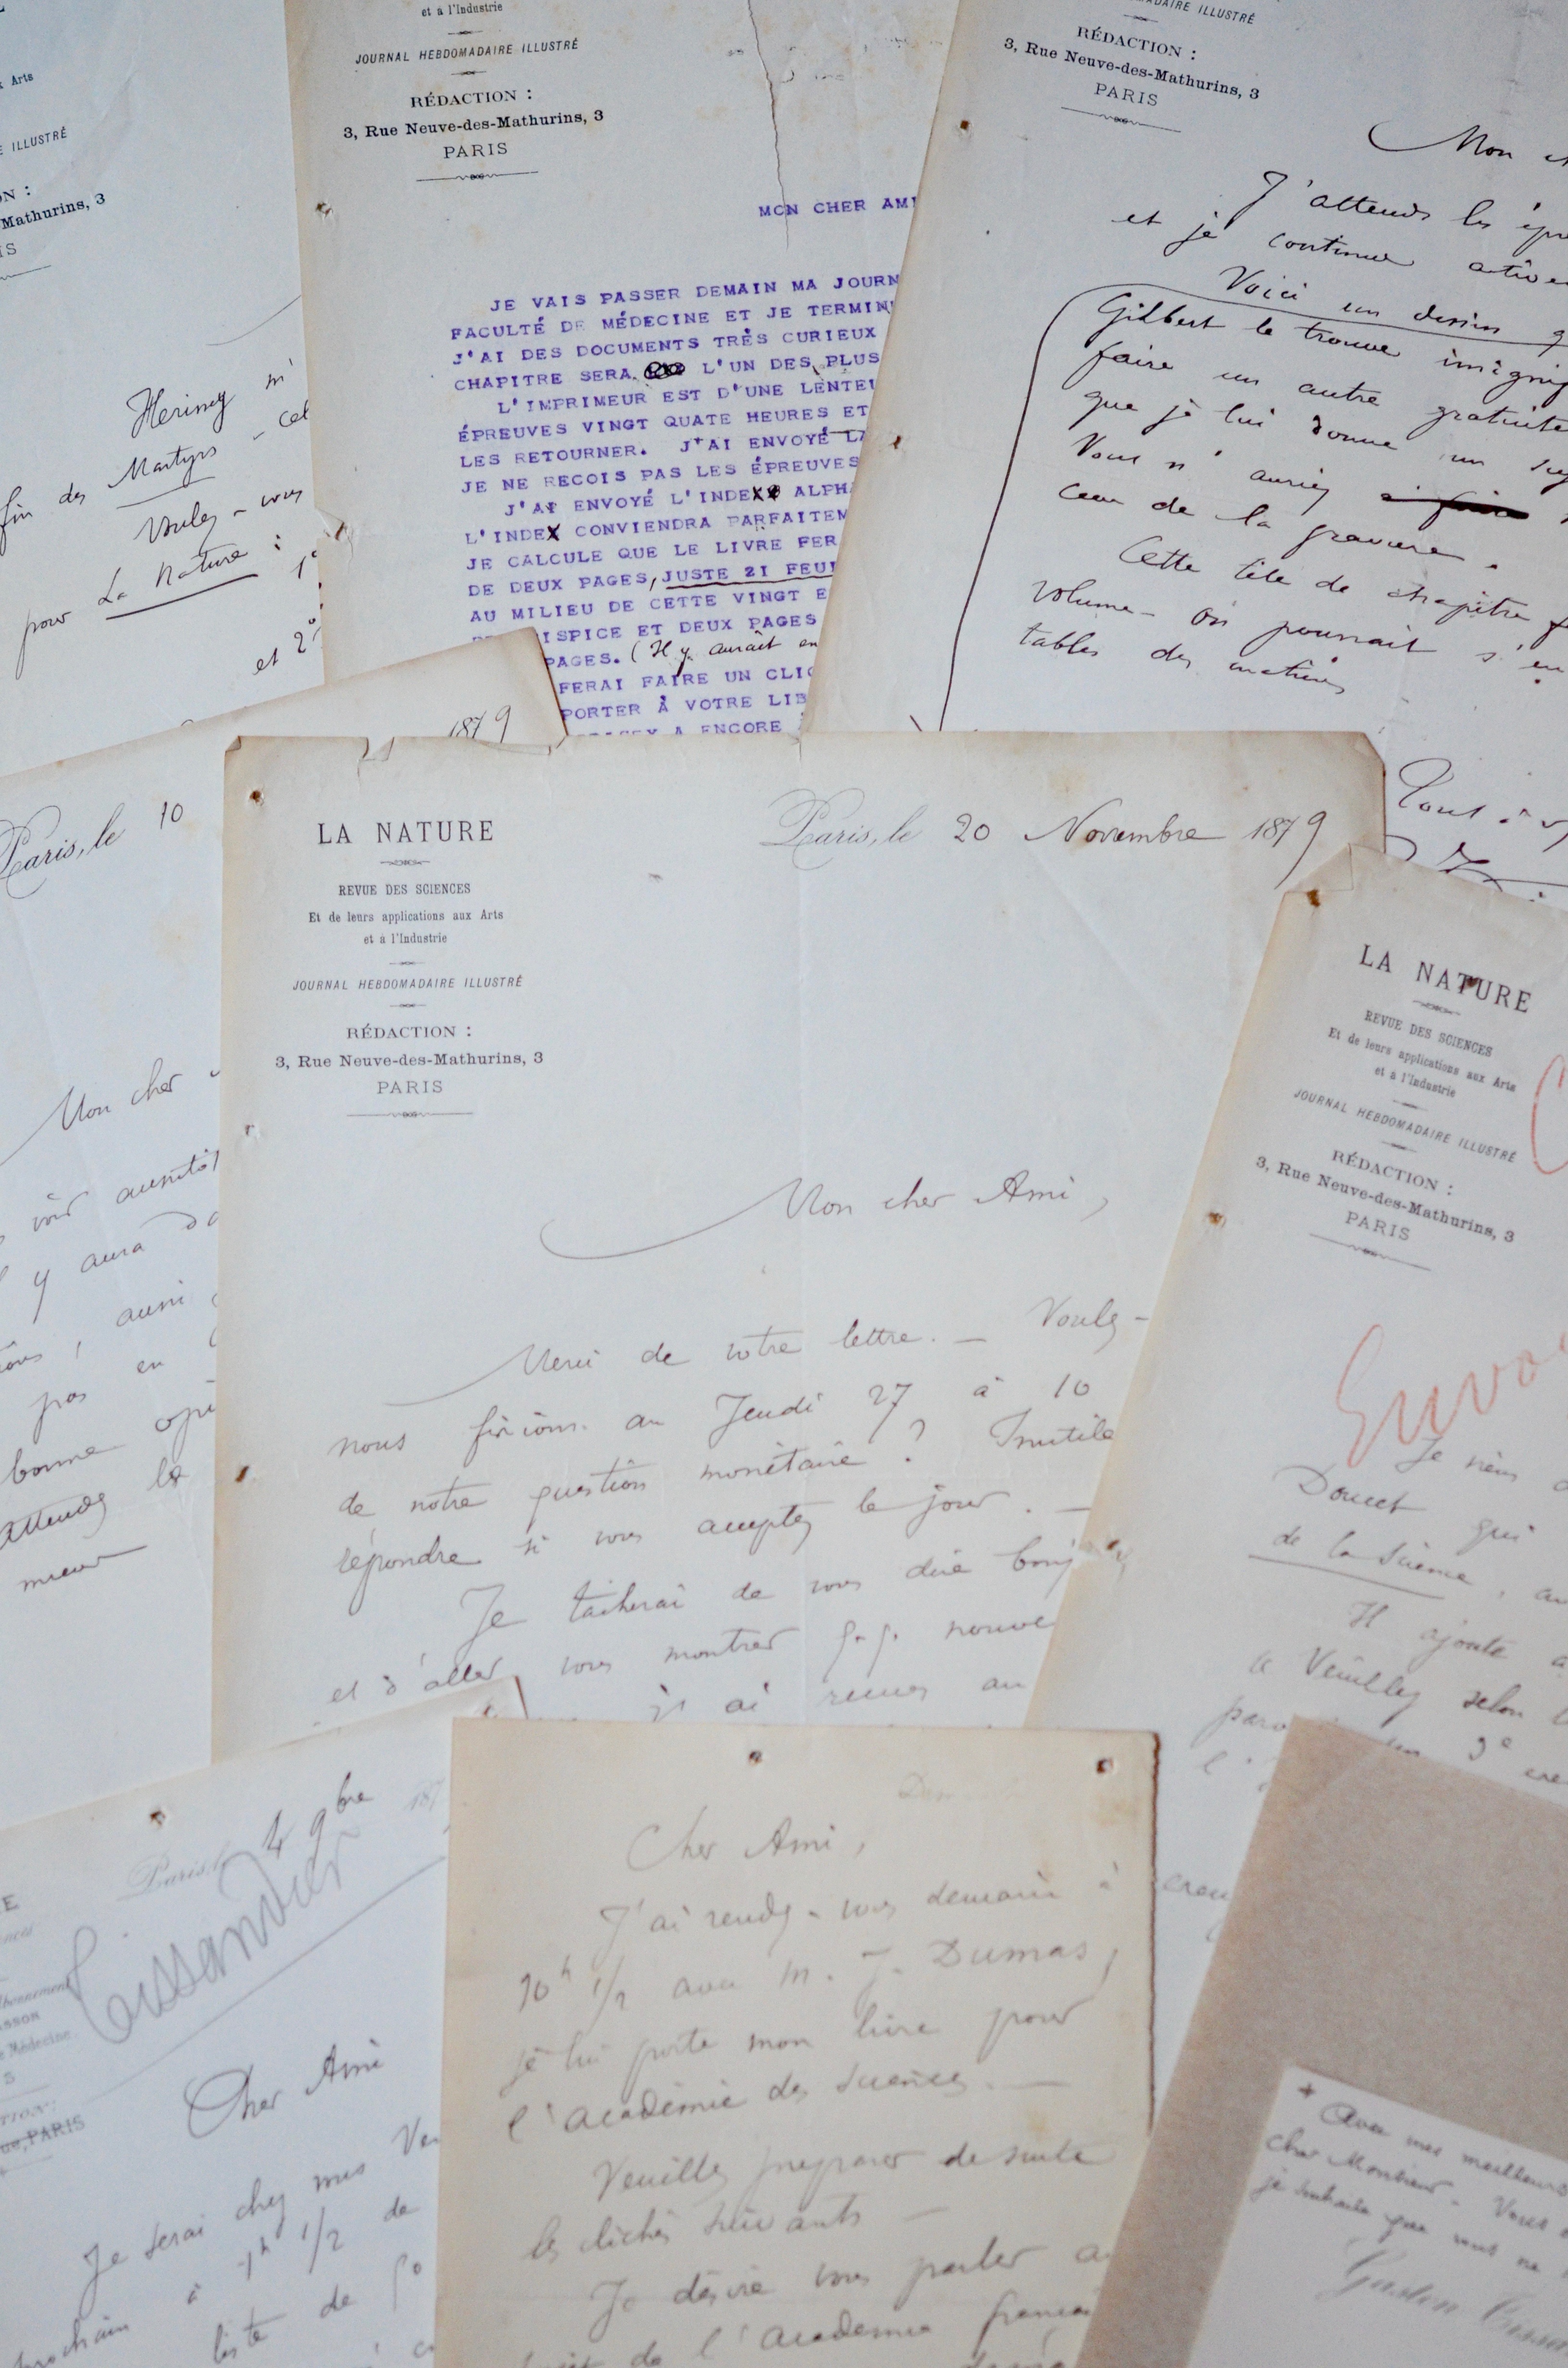 Arts
ILLUSTRÉ
Mathurins, 3
Hering m'
fin des Martyrs - cel
Voulez-vous
pour La Nature : 1°
et 2°
et à l'Industrie
JOURNAL HEBDOMADAIRE ILLUSTRÉ
RÉDACTION :
3, Rue Neuve-des-Mathurins, 3
PARIS
MON CHER AMI
JE VAIS PASSER DEMAIN MA JOURN
FACULTÉ DE MÉDECINE ET JE TERMIN
J'AI DES DOCUMENTS TRÈS CURIEUX
CHAPITRE SERA L'UN DES PLUS
L'IMPRIMEUR EST D'UNE LENTEU
ÉPREUVES VINGT QUATE HEURES ET
LES RETOURNER. J'AI ENVOYÉ LA
JE NE RECOIS PAS LES ÉPREUVES
J'AI ENVOYÉ L'INDEX ALPHA
L'INDEX CONVIENDRA PARFAITEM
JE CALCULE QUE LE LIVRE FER
DE DEUX PAGES, JUSTE 21 FEUI
AU MILIEU DE CETTE VINGT E
ISPICE ET DEUX PAGES
PAGES. (Il y aurait en
FERAI FAIRE UN CLIC
PORTER À VOTRE LIB
A ENCORE
ILLUSTRÉ
RÉDACTION :
3, Rue Neuve-des-Mathurins, 3
PARIS
Mon ch
J'attends les épr
et je continue active
Voici un dessin q
Gilbert le trouve insignif
faire un autre gratuite
que je lui donne un suj
Vous n'auriez
ceux de la gravure.
Cette tête de chapitre f
volume - on pourrait s'en
tables des matières
Tout à v
1879
Paris, le 10
Mon cher
voir aussitôt
y aura da
aussi
pas en
bonne opi
attendez le
mieux
LA NATURE
REVUE DES SCIENCES
Et de leurs applications aux Arts
et à l'Industrie
JOURNAL HEBDOMADAIRE ILLUSTRÉ
RÉDACTION :
3, Rue Neuve-des-Mathurins, 3
PARIS
Paris, le 20 Novembre 1879
Mon cher Ami,
Merci de votre lettre. - Voulez-
nous fixions au Jeudi 27 à 10
de notre question monétaire ? Inutile
répondre si vous acceptez le jour. -
Je tacherai de vous dire bonj
et d'aller vous montrer q.q. nouve
j'ai reçues au
LA NATURE
REVUE DES SCIENCES
Et de leurs applications aux Arts
et à l'Industrie
JOURNAL HEBDOMADAIRE ILLUSTRÉ
RÉDACTION :
3, Rue Neuve-des-Mathurins, 3
PARIS
Envo
Je viens d
Doucet qui
de la Science, au
Il ajoute
Veuillez selon
Paris, le 4 9bre 187
Tissandier
PARIS
Cher Ami
Je serai chez moi Ven
prochain à 1h 1/2 de
liste de
Cher Ami,
J'ai rendez-vous demain à
10h 1/2 avec M. J. Dumas,
je lui porte mon livre pour
l'académie des Sciences. -
Veuillez préparer de suite
les clichés suivants -
Je désire vous parler a
sujet de l'academie françai
+ Avec mes meilleurs
cher Monsieur. Vous
je souhaite que vous ne
Gaston Tissan